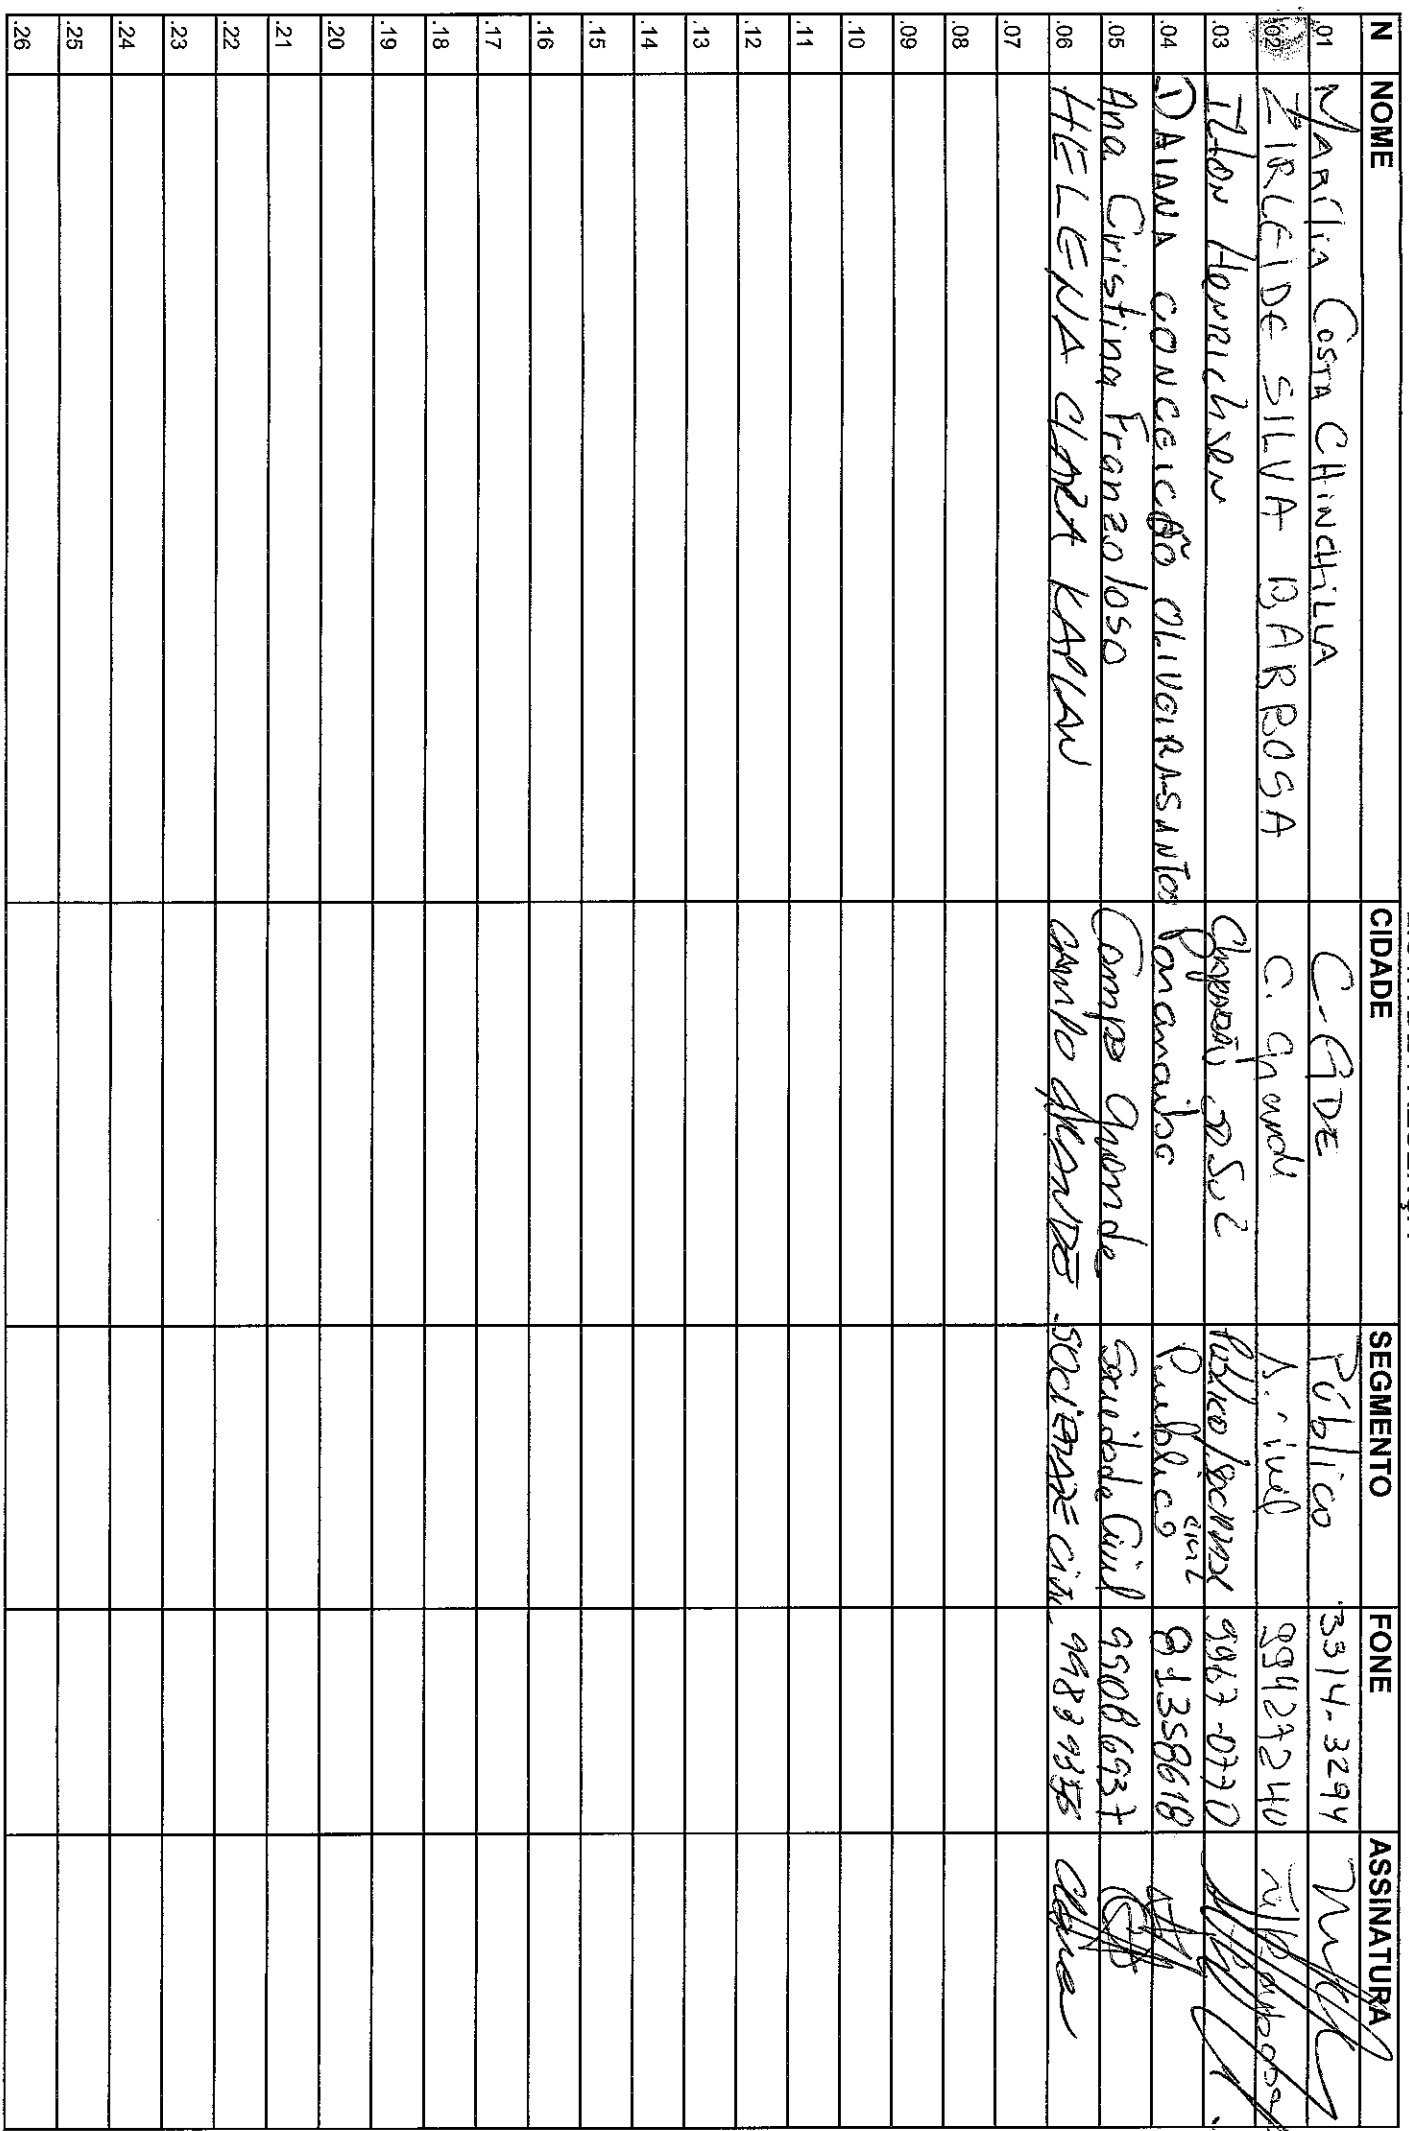 N NOME CIDADE SEGMENTO FONE ASSINATURA
.01 MARÍLIA COSTA CHINCHILLA C-GDE Público 3314-3294
.02 ZIRLEIDE SILVA BARBOSA C. Grande S. Civil 99427240
.03 Ilton Henrichsen Chapadão do Sul Público/Sociedade civil 9967-0770
.04 AIANA CONCEIÇÃO OLIVEIRA SANTOS Paranaiba Publico 81358618
.05 Ana Cristina Franzoloso Campo Grande Sociedade Civil
.06 HELENA CLARA KAPLAN CAMPO GRANDE SOCIEDADE CIVIL Clara
.07
.08
.09
.10
.11
.12
.13
.14
.15
.16
.17
.18
.19
.20
.21
.22
.23
.24
.25
.26